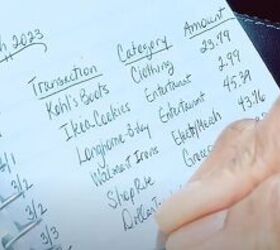 h 2023
Transaction Category Amount
Kohl's Boots Clothing 23.79
Ikea Cookies Entertainmt 2.99
Longhorne Entertainmt 45.39
Walmart Irons 43.76
3/1 ShopRite Groce
3/2
3/2
3/3